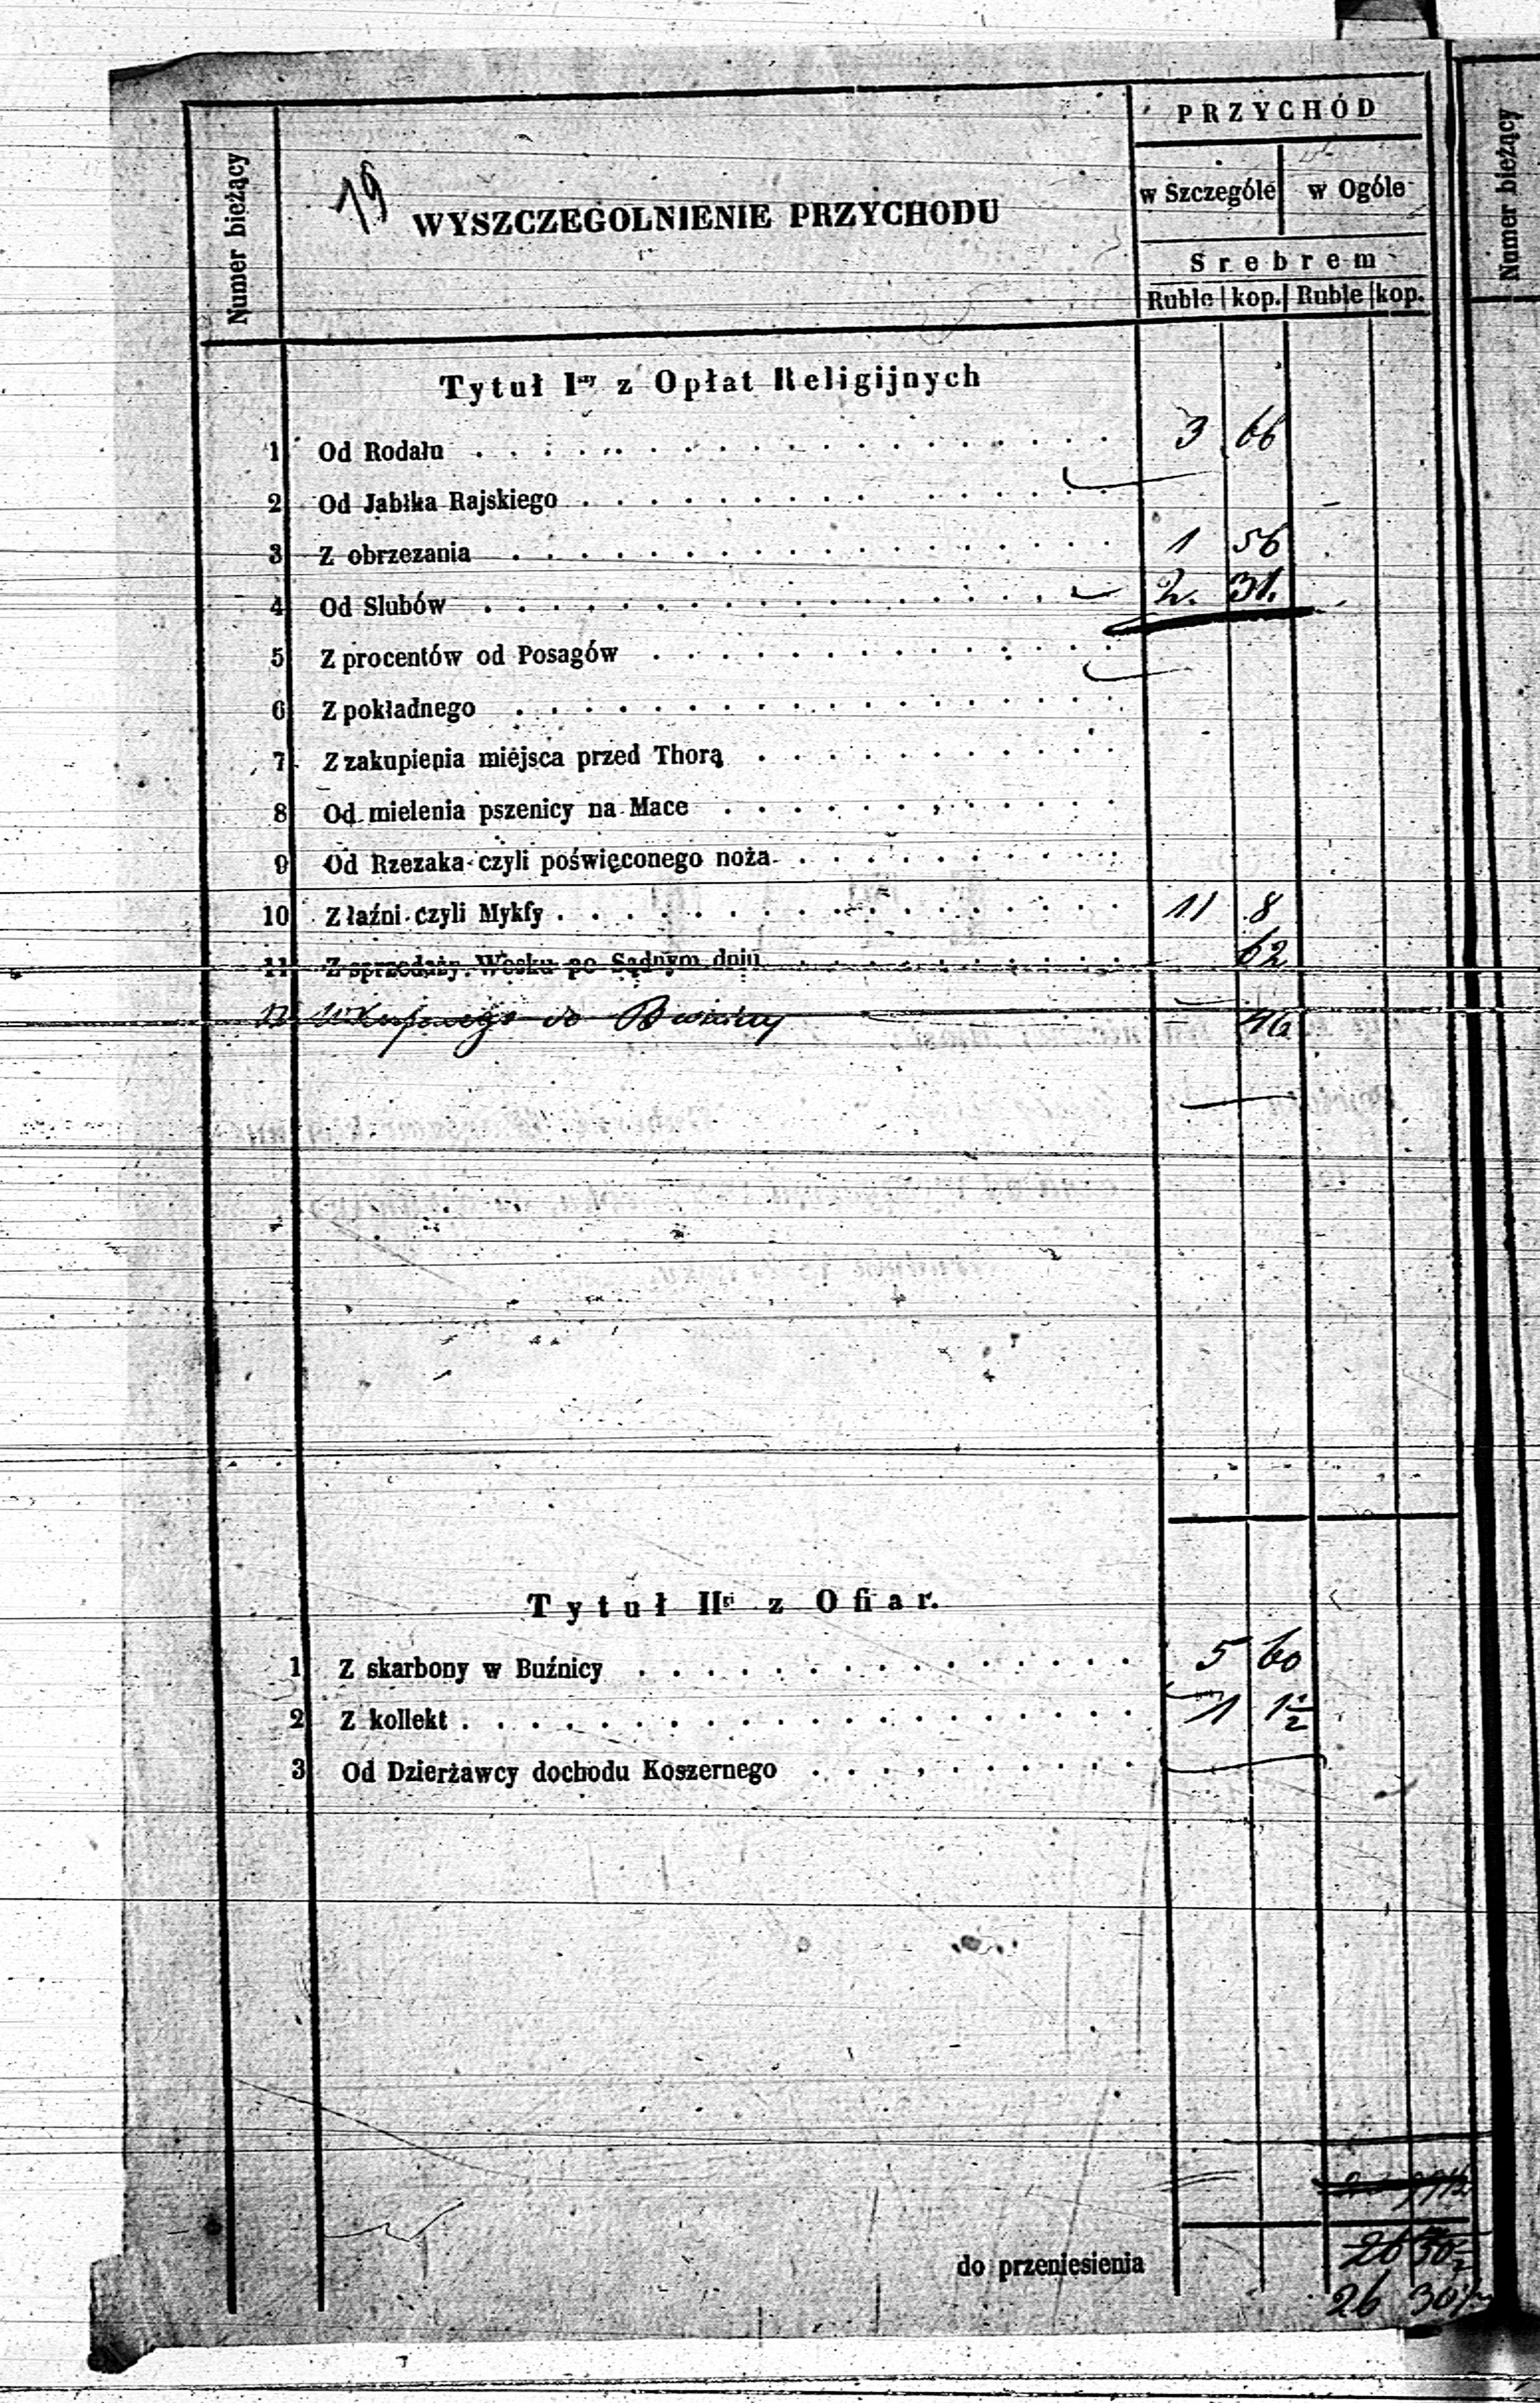 PRZYCHÓD
Numer bieżący
19
WYSZCZEGOLNIENIE PRZYCHODU
w Szczególe w Ogóle
Srebrem
Ruble kop. Ruble kop.
Numer bieżący
Tytuł Iszy z Opłat Religijnych
1 Od Rodału 3 66
2 Od Jabłka Rajskiego
3 Z obrzezania 1 56
4 Od Slubów 2. 31.
5 Z procentów od Posagów
6 Z pokładnego
7 Z zakupienia miejsca przed Thorą
8 Od mielenia pszenicy na Mace
9 Od Rzezaka czyli poświęconego noża
10 Z łaźni czyli Mykfy 11 8
11 Z sprzedaży Wosku po Sądnym dniu 62
12 do 46
Tytuł IIgi z Ofiar.
1 Z skarbony w Buźnicy 5 60
2 Z kollekt 1 1½
3 Od Dzierżawcy dochodu Koszernego
26 30½
do przeniesienia
26 30½